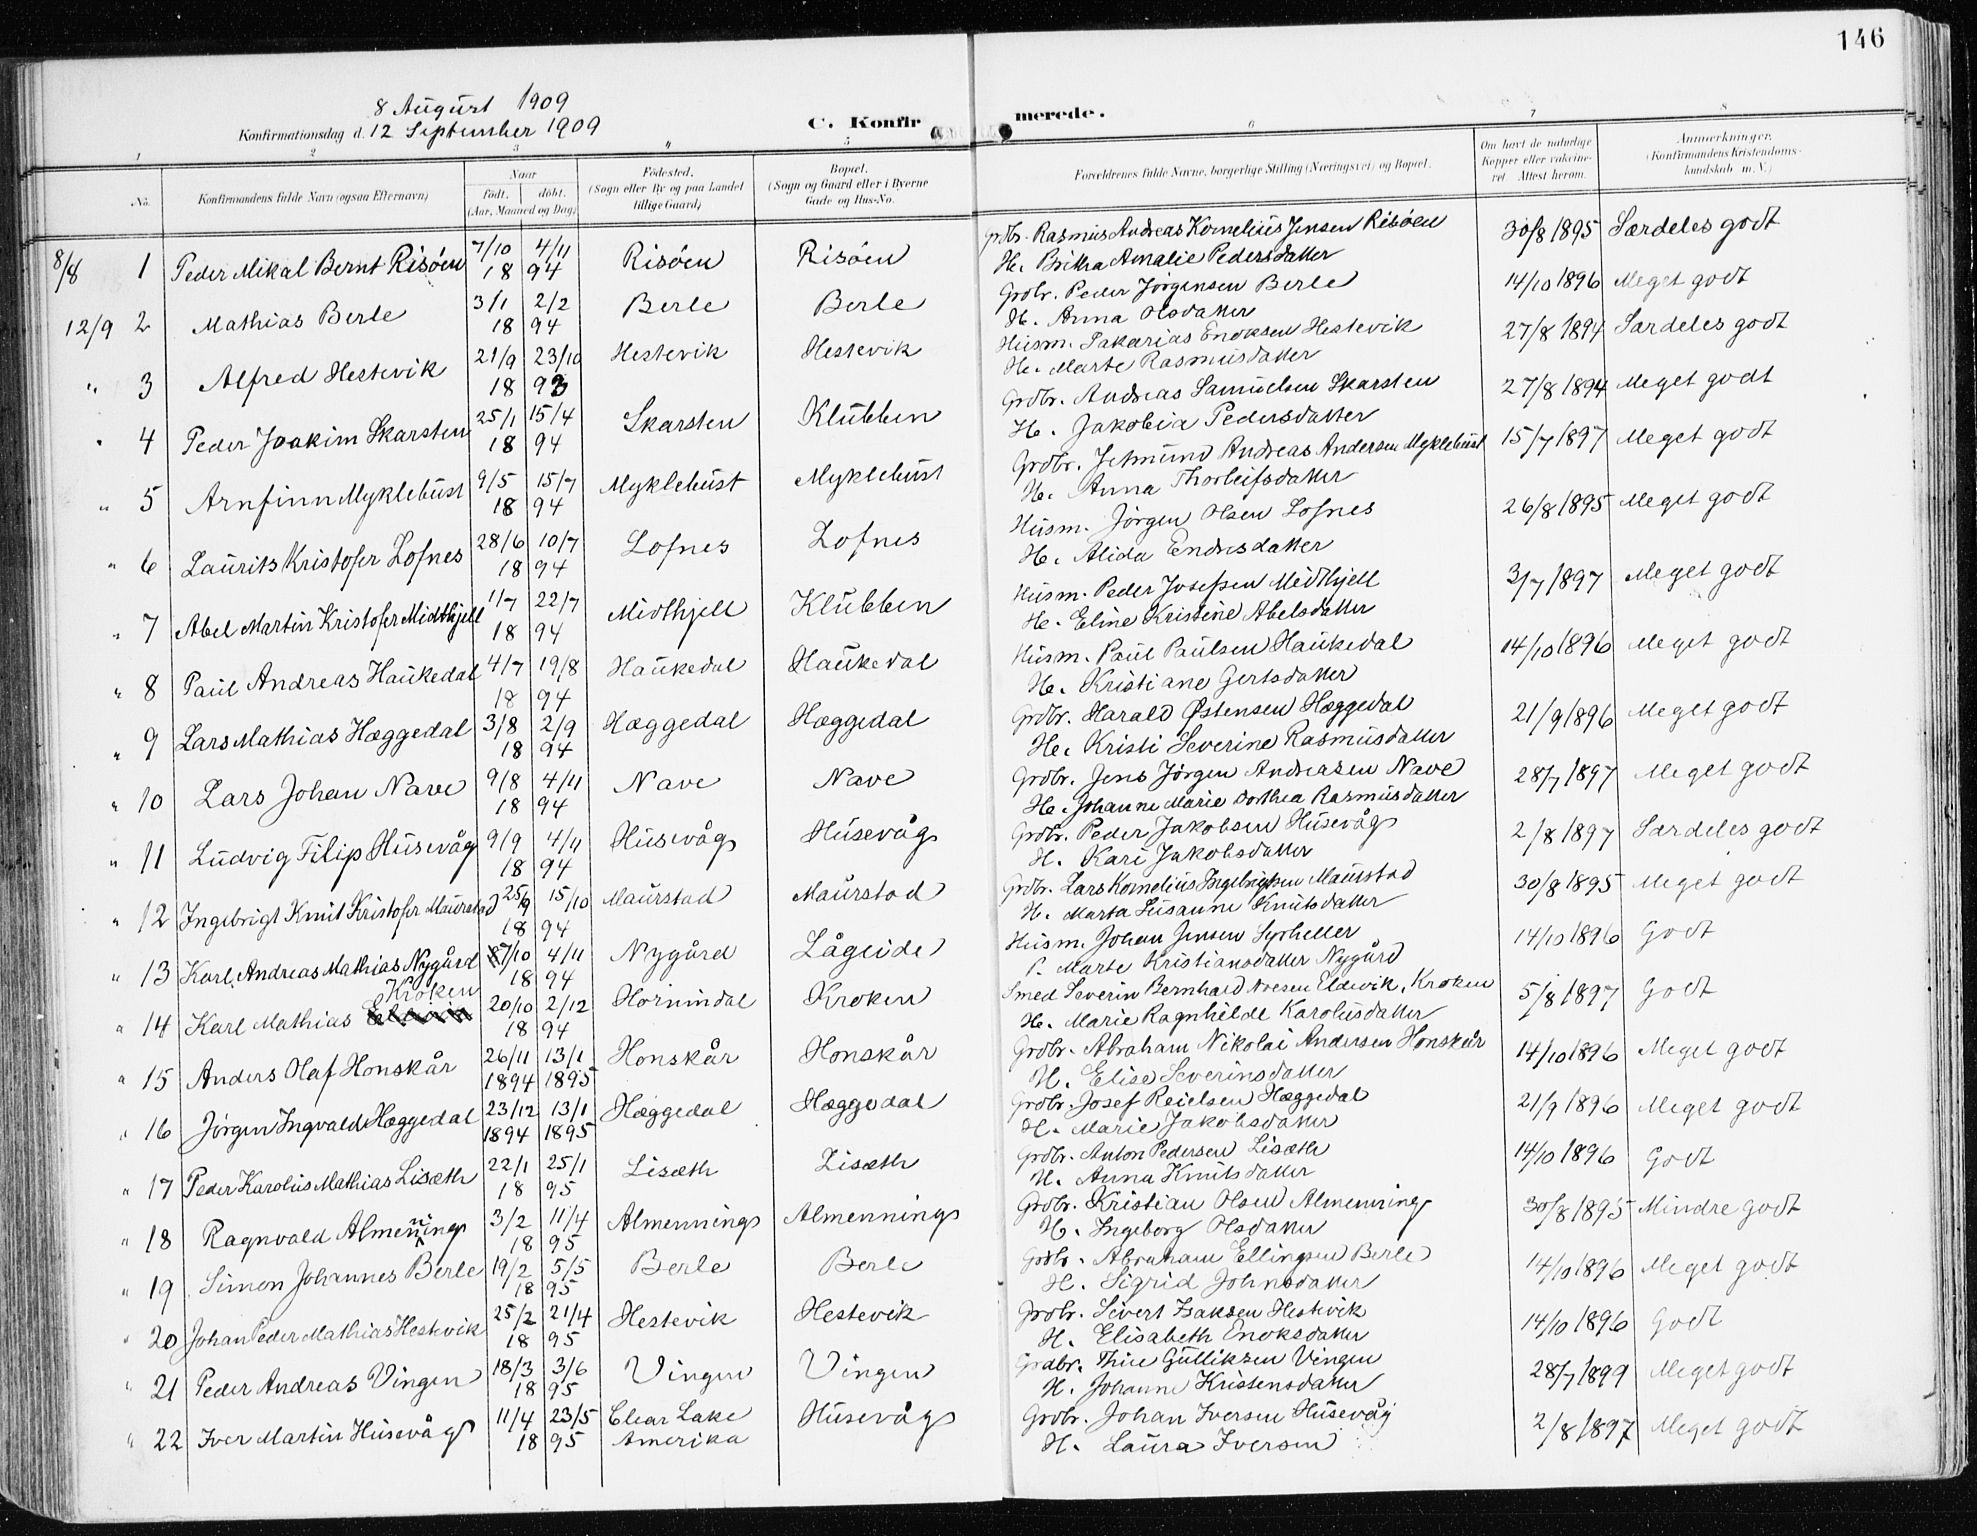 146
8 August 1909
Konfirmationsdag d. 12 September 1909
C. Konfirmerede.
1 2 3 4 5 6 7 8
No. Konfirmandens fulde Navn (ogsaa Efternavn) Naar født. døbt. (Aar, Maaned og Dag) Fødested. (Sogn eller By og paa Landet tillige Gaard) Bopæl. (Sogn og Gaard eller i Byerne Gade og Hus-No. Forældrenes fulde Navne, borgerlige Stilling (Næringsvei) og Bopæl. Om havt de naturlige Kopper eller vaccineret. Attest herom. Anmærkninger. (Konfirmandens Kristendomskundskab m. V.)
8/8 1 Peder Mikal Bernt Risöen 7/10 4/11 18 94 Risöen Risöen Grdbr. Rasmus Andreas Kornelius Jensen Risöen 30/8 1895 Særdeles godt
H. Britha Amalie Pedersdatter
12/9 2 Mathias Berle 3/1 2/2 18 94 Berle Berle Grdbr. Peder Jörgensen Berle 14/10 1896 Meget godt
H. Anna Olsdatter
" 3 Alfred Hestevik 21/9 23/10 18 93 Hestevik Hestevik Husm. Sakarias Enoksen Hestevik 27/8 1894 Særdeles godt
H. Marte Rasmusdatter
" 4 Peder Joakim Skarsten 25/1 15/4 18 94 Skarsten Klubben Grdbr. Andreas Samuelsen Skarsten 27/8 1894 Meget godt
H. Jakobia Pedersdatter
" 5 Arnfinn Myklebust 9/5 15/7 18 94 Myklebust Myklebust Grdbr. Jetmund Andreas Andersen Myklebust 15/7 1897 Meget godt
H. Anna Thorleifsdatter
" 6 Laurits Kristofer Lofnes 28/6 10/7 18 94 Lofnes Lofnes Husm. Jörgen Olsen Lofnes 26/8 1895 Meget godt
H. Alida Endresdatter
" 7 Abel Martin Kristofer Midthjell 1/7 22/7 18 94 Midthjell Klubben Husm. Peder Josefsen Midthjell 3/7 1897 Meget godt
H. Eline Kristine Abelsdatter
" 8 Paul Andreas Haukedal 4/7 19/8 18 94 Haukedal Haukedal Husm. Paul Paulsen Haukedal 14/10 1896 Meget godt
H. Kristiane Gertsdatter
" 9 Lars Mathias Hæggedal 3/8 2/9 18 94 Hæggedal Hæggedal Grdbr. Harald Östensen Hæggedal 21/9 1896 Meget godt
H. Kristi Severine Rasmusdatter
" 10 Lars Johan Nave 9/8 4/11 18 94 Nave Nave Grdbr. Jens Jörgen Andreasen Nave 28/7 1897 Meget godt
H. Johanne Marie Dorthea Rasmusdatter
" 11 Ludvig Filip Husevåg 9/9 4/11 18 94 Husevåg Husevåg Grdbr. Peder Jakobsen Husevåg 2/8 1897 Særdeles godt
H. Kari Jakobsdatter
" 12 Ingebrigt Knut Kristofer Maurstad 25/9 15/10 18 94 Maurstad Maurstad Grdbr. Lars Kornelius Ingebrigtsen Maurstad 30/8 1895 Meget godt
H. Marta Susanne Knutsdatter
" 13 Karl Andreas Mathias Nygård 7/10 4/11 18 94 Nygård Lågeide Husm. Johan Jensen Syrheller 14/10 1896 Godt
P. Marte Kristiansdatter Nygård
" 14 Karl Mathias Kroken 20/10 2/12 18 94 Hornindal Kroken Smed Severin Bernhard Noesen Eldevik, Kroken 5/8 1897 Godt
H. Marie Ragnhilde Karolusdatter
" 15 Anders Olaf Honskår 26/11 1894 13/1 1895 Honskår Honskår Grdbr. Abraham Nikolai Andersen Honskår 14/10 1896 Meget godt
H. Elise Severinsdatter
" 16 Jörgen Ingvald Hæggedal 23/12 1894 13/1 1895 Hæggedal Hæggedal Grdbr. Josef Reielsen Hæggedal 21/9 1896 Meget godt
H. Marie Jakobsdatter
" 17 Peder Karolus Mathias Lisæth 22/1 25/1 18 95 Lisæth Lisæth Grdbr. Anton Pedersen Lisæth 14/10 1896 Godt
H. Anna Knutsdatter
" 18 Ragnvald Almenning 3/2 11/4 18 95 Almenning Almenning Grdbr. Kristian Olsen Almenning 30/8 1895 Mindre godt
H. Ingeborg Olsdatter
" 19 Simon Johannes Berle 19/2 5/5 18 95 Berle Berle Grdbr. Abraham Ellingsen Berle 14/10 1896 Meget godt
H. Sigrid Johnsdatter
" 20 Johan Peder Mathias Hestevik 25/2 21/4 18 95 Hestevik Hestevik Grdbr. Sivert Isaksen Hestevik 14/10 1896 Godt
H. Elisabeth Enoksdatter
" 21 Peder Andreas Vingen 18/3 3/6 18 95 Vingen Vingen Grdbr. Thue Gulliksen Vingen 28/7 1899 Meget godt
H. Johanne Kristensdatter
" 22 Iver Martin Husevåg 11/4 23/5 18 95 Clear Lake Amerika Husevåg Grdbr. Johan Iversen Husevåg 2/8 1897 Meget godt
H. Laura Iversen